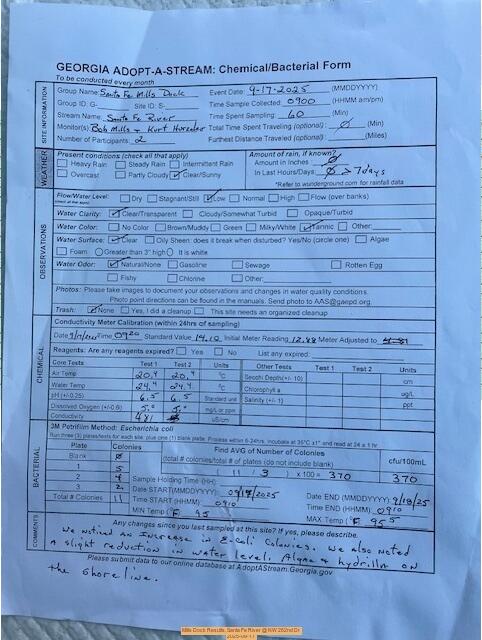 GEORGIA ADOPT-A-STREAM: Chemical/Bacterial Form
To be conducted every month
SITE INFORMATION
Group Name: Santa Fe Mills Dock Event Date: 9-17-2025 (MMDDYYYY)
Group ID: G- Site ID: S- Time Sample Collected 0900 (HHMM am/pm)
Stream Name: Santa Fe River Time Spent Sampling: 60 (Min)
Monitor(s) Bob Mills + Kurt Total Time Spent Traveling (optional): 0 (Min)
Number of Participants: 2 Furthest Distance Traveled (optional): (Miles)
WEATHER
Present conditions (check all that apply) Amount of rain, if known?
Heavy Rain Steady Rain Intermittent Rain Amount in Inches 0
Overcast Partly Cloudy ✓ Clear/Sunny In Last Hours/Days: 0 > 7 days
*Refer to wunderground.com for rainfall data
OBSERVATIONS
Flow/Water Level: Dry Stagnant/Still ✓ Low Normal High Flow (over banks)
Water Clarity: ✓ Clear/Transparent Cloudy/Somewhat Turbid Opaque/Turbid
Water Color: No Color Brown/Muddy Green Milky/White ✓ Tannic Other:
Water Surface: ✓ Clear Oily Sheen: does it break when disturbed? Yes/No (circle one) Algae
Foam Greater than 3" high It is white
Water Odor: ✓ Natural/None Gasoline Sewage Rotten Egg
Fishy Chlorine Other:
Photos: Please take images to document your observations and changes in water quality conditions.
Photo point directions can be found in the manuals. Send photo to AAS@gaepd.org.
Trash: ✓ None Yes, I did a cleanup This site needs an organized cleanup
CHEMICAL
Conductivity Meter Calibration (within 24hrs of sampling)
Date 9/17/2025 Time 0920 Standard Value 14.10 Initial Meter Reading 12.88 Meter Adjusted to
Reagents: Are any reagents expired? Yes No List any expired:
Core Tests Test 1 Test 2 Units Other Tests Test 1 Test 2 Units
Air Temp 20.4 20.4 °C Secchi Depth(+/- 10) cm
Water Temp 24.4 24.4 °C Chlorophyll a ug/L
pH (+/-0.25) 6.5 6.5 Standard unit Salinity (+/- 1) ppt
Dissolved Oxygen (+/-0.6) 5.0 5.0 mg/L or ppm
Conductivity uS/cm
BACTERIAL
3M Petrifilm Method: Escherichia coli
Run three (3) plates/tests for each site, plus one (1) blank plate. Process within 6-24hrs, incubate at 35°C ±1° and read at 24 ± 1 hr
Plate Colonies Find AVG of Number of Colonies cfu/100mL
Blank 0 (total # colonies/total # of plates (do not include blank)
1 5 11 / 3 ) x 100 = 370 370
2 4 Sample Holding Time (HH):
3 2 Date START(MMDDYYYY) 09/17/2025 Date END (MMDDYYYY) 9/18/25
Total # Colonies 11 Time START (HHMM) 0910 Time END (HHMM) 0910
MIN Temp (°F 95 MAX Temp (°F 95.5
COMMENTS
Any changes since you last sampled at this site? If yes, please describe.
We noticed an Increase in E-Coli Colonies. We also noted
a slight reduction in water level. Algae & hydrilla on
Please submit data to our online database at AdoptAStream.Georgia.gov
the shoreline.
Mills Dock Results, Santa Fe River @ NW 282nd Dr
2025-09-17